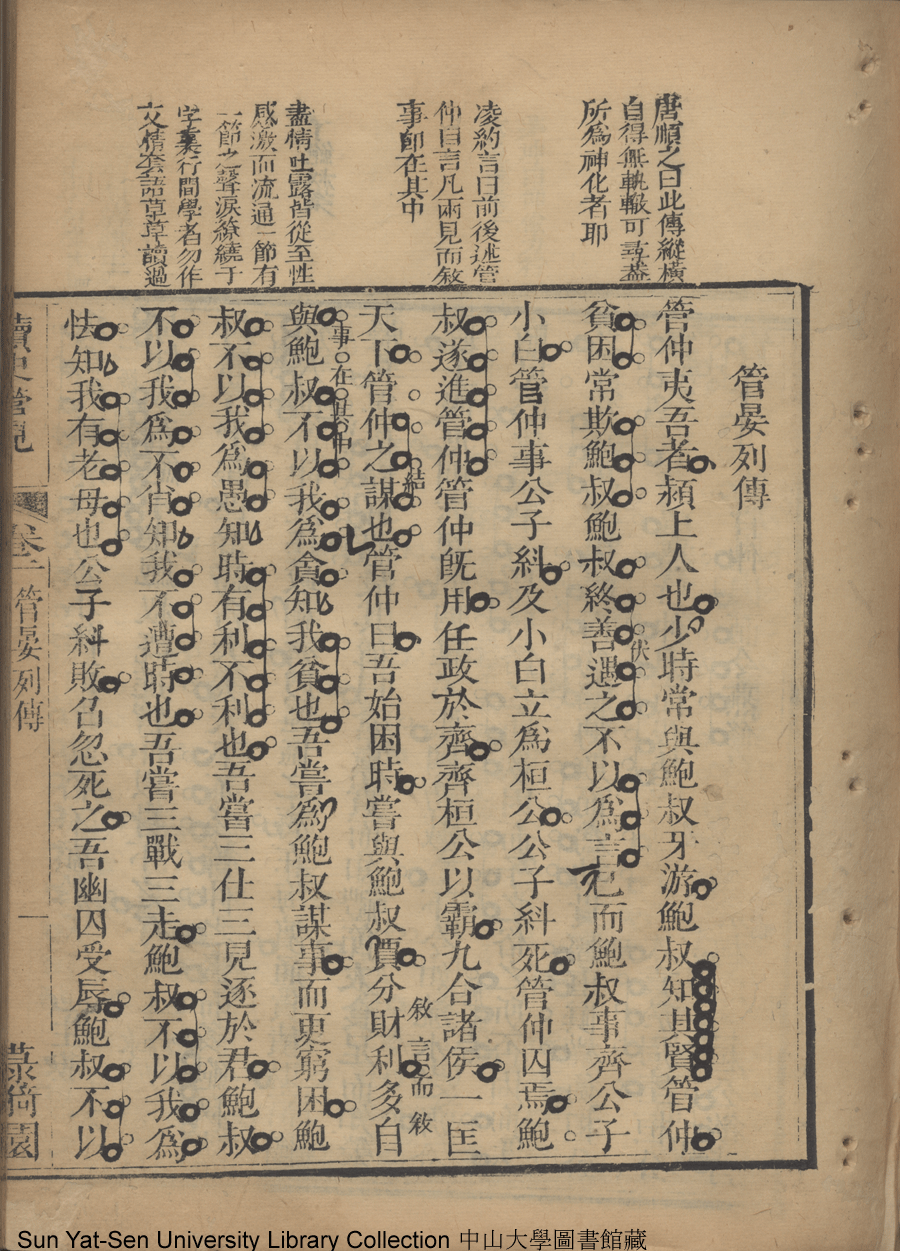 唐順之曰此傳縱橫
自得無軌轍可尋蓋
所為神化者耶
凌約言曰前後述管
仲自言凡兩見而敘
事即在其中
盡情吐露皆從至性
感激而流通一節有
一節之聲淚繚繞于
字裏行間學者勿作
文情套語草草讀過
管晏列傳
管仲夷吾者潁上人也少時常與鮑叔牙游鮑叔知其賢管仲
貧困常欺鮑叔鮑叔終善遇之不以為言已而鮑叔事齊公子
伏
小白管仲事公子糾及小白立為桓公公子糾死管仲囚焉鮑
叔遂進管仲管仲既用任政於齊齊桓公以霸九合諸侯一匡
天下管仲之謀也管仲曰吾始困時嘗與鮑叔賈分財利多自
結 敘 言而敘
與鮑叔不以我為貪知我貧也吾嘗為鮑叔謀事而更窮困鮑
事在其中
叔不以我為愚知時有利不利也吾嘗三仕三見逐於君鮑叔
不以我為不肖知我不遭時也吾嘗三戰三走鮑叔不以我為
怯知我有老母也公子糾敗召忽死之吾幽囚受辱鮑叔不以
讀史管見 卷一 管晏列傳 一 菉漪園
Sun Yat-Sen University Library Collection 中山大學圖書館藏